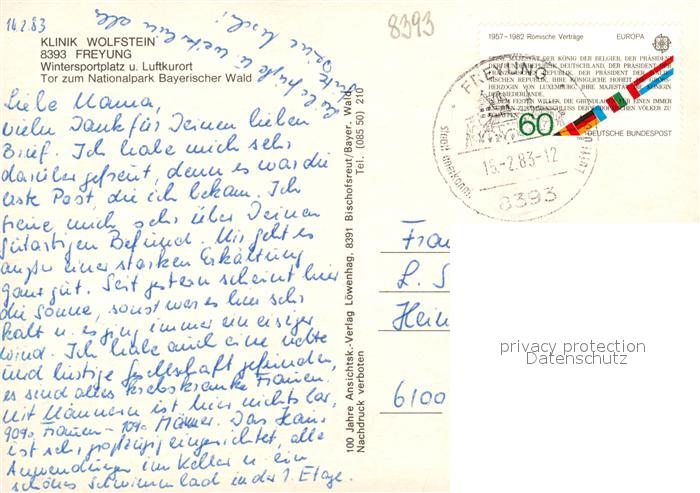 14.2.83
8393
KLINIK WOLFSTEIN
8393 FREYUNG
Wintersportplatz u. Luftkurort
Tor zum Nationalpark Bayerischer Wald
Liebe Mama,
vielen Dank für Deinen lieben
Brief. Ich habe mich sehr
darüber gefreut, denn es war die
erste Post die ich bekam. Ich
freue mich sehr über Deinen
gutartigen Befund. Mir geht es
außer einer starken Erkältung
ganz gut. Seit gestern scheint hier
die Sonne, sonst war es hier sehr
kalt u. es ging immer ein eisiger
Wind. Ich habe auch eine nette
und lustige Gesellschaft gefunden,
es sind alles krebskranke Frauen.
Mit Männern ist hier nichts los,
90% Frauen - 10% Männer. Das Haus
ist sehr großzügig eingerichtet, alle
Anwendungen im Keller u. ein
schönes Schwimmbad in der 1. Etage.
alles
Deine
100 Jahre Ansichtsk.-Verlag Löwenhag, 8391 Bischofsreut/Bayer. Wald
Nachdruck verboten
Tel. (085 50) 210
1957-1982 Römische Verträge
EUROPA
SEINE MAJESTÄT DER KÖNIG DER BELGIER, DER PRÄSIDENT
60
DEUTSCHE BUNDESPOST
FREYUNG
15.-2.83-12
8393
Frau
L. S
Hein
6100
privacy protection
Datenschutz